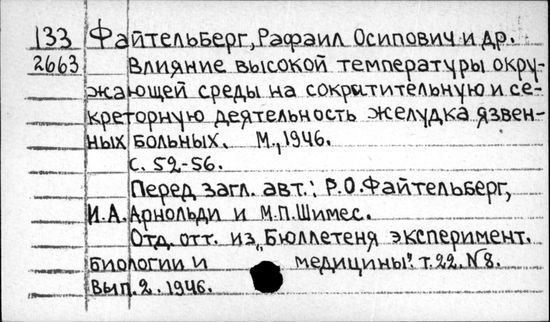 133 Файтельберг, Рафаил Осипович и др.
2663 Влияние высокой температуры окру-
жающей среды на сократительную и се-
креторную деятельность желудка язвен-
ных больных. М., 1946.
с. 52-56.
Перед загл. авт.: Р.О. Файтельберг,
И.А. Арнольди и М.П. Шимес.
Отд. отт. из „Бюллетеня эксперимент.
биологии и медицины". т. 22. №8.
Вып. 2. 1946.